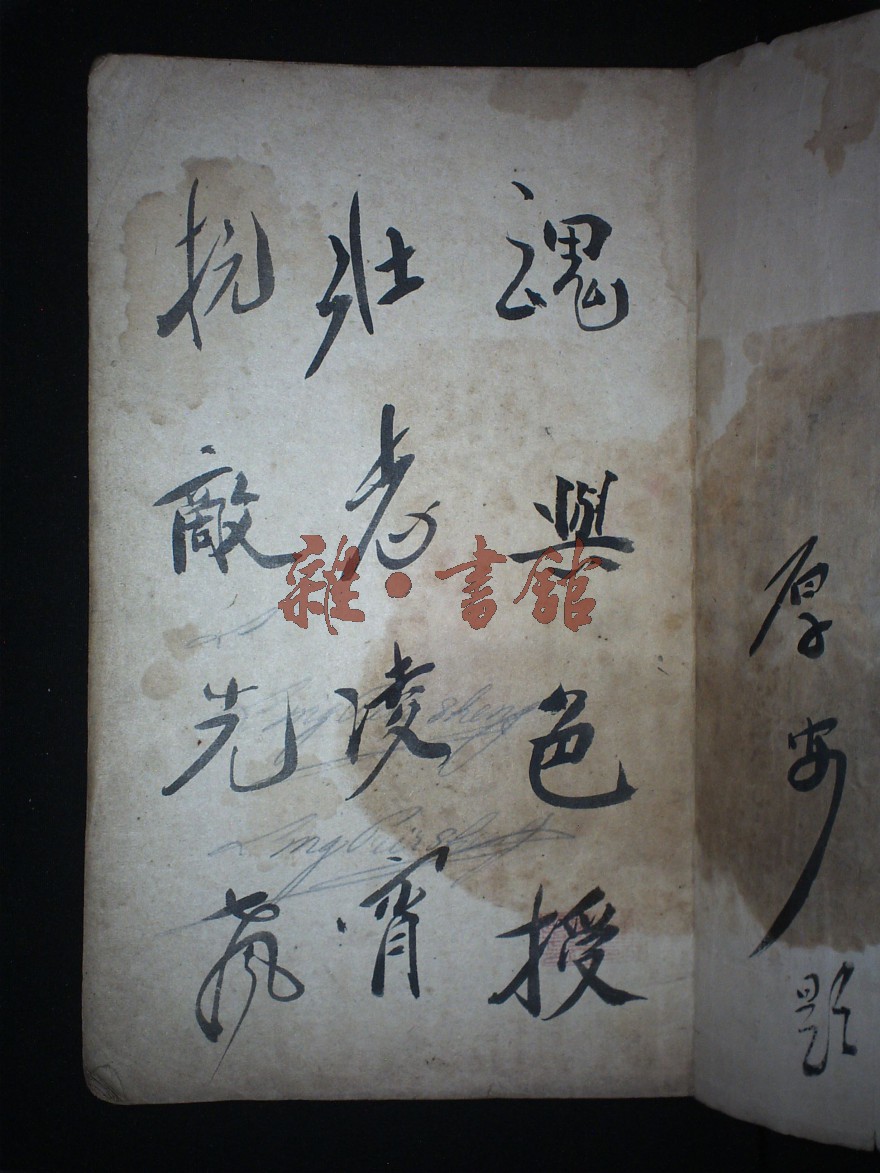 厚安題
魂與色授
壯志凌霄
抗敵先
雜·書館